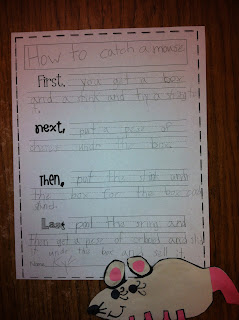 How to catch a mouse
First, you get a box
and a stick and ty a string to
it.
next, put a pese of
chees under the box
Then, put the stick undr
the box for the box
Last, pull the string and
then get a pese of and
under the box and sell it.
Name Kyle